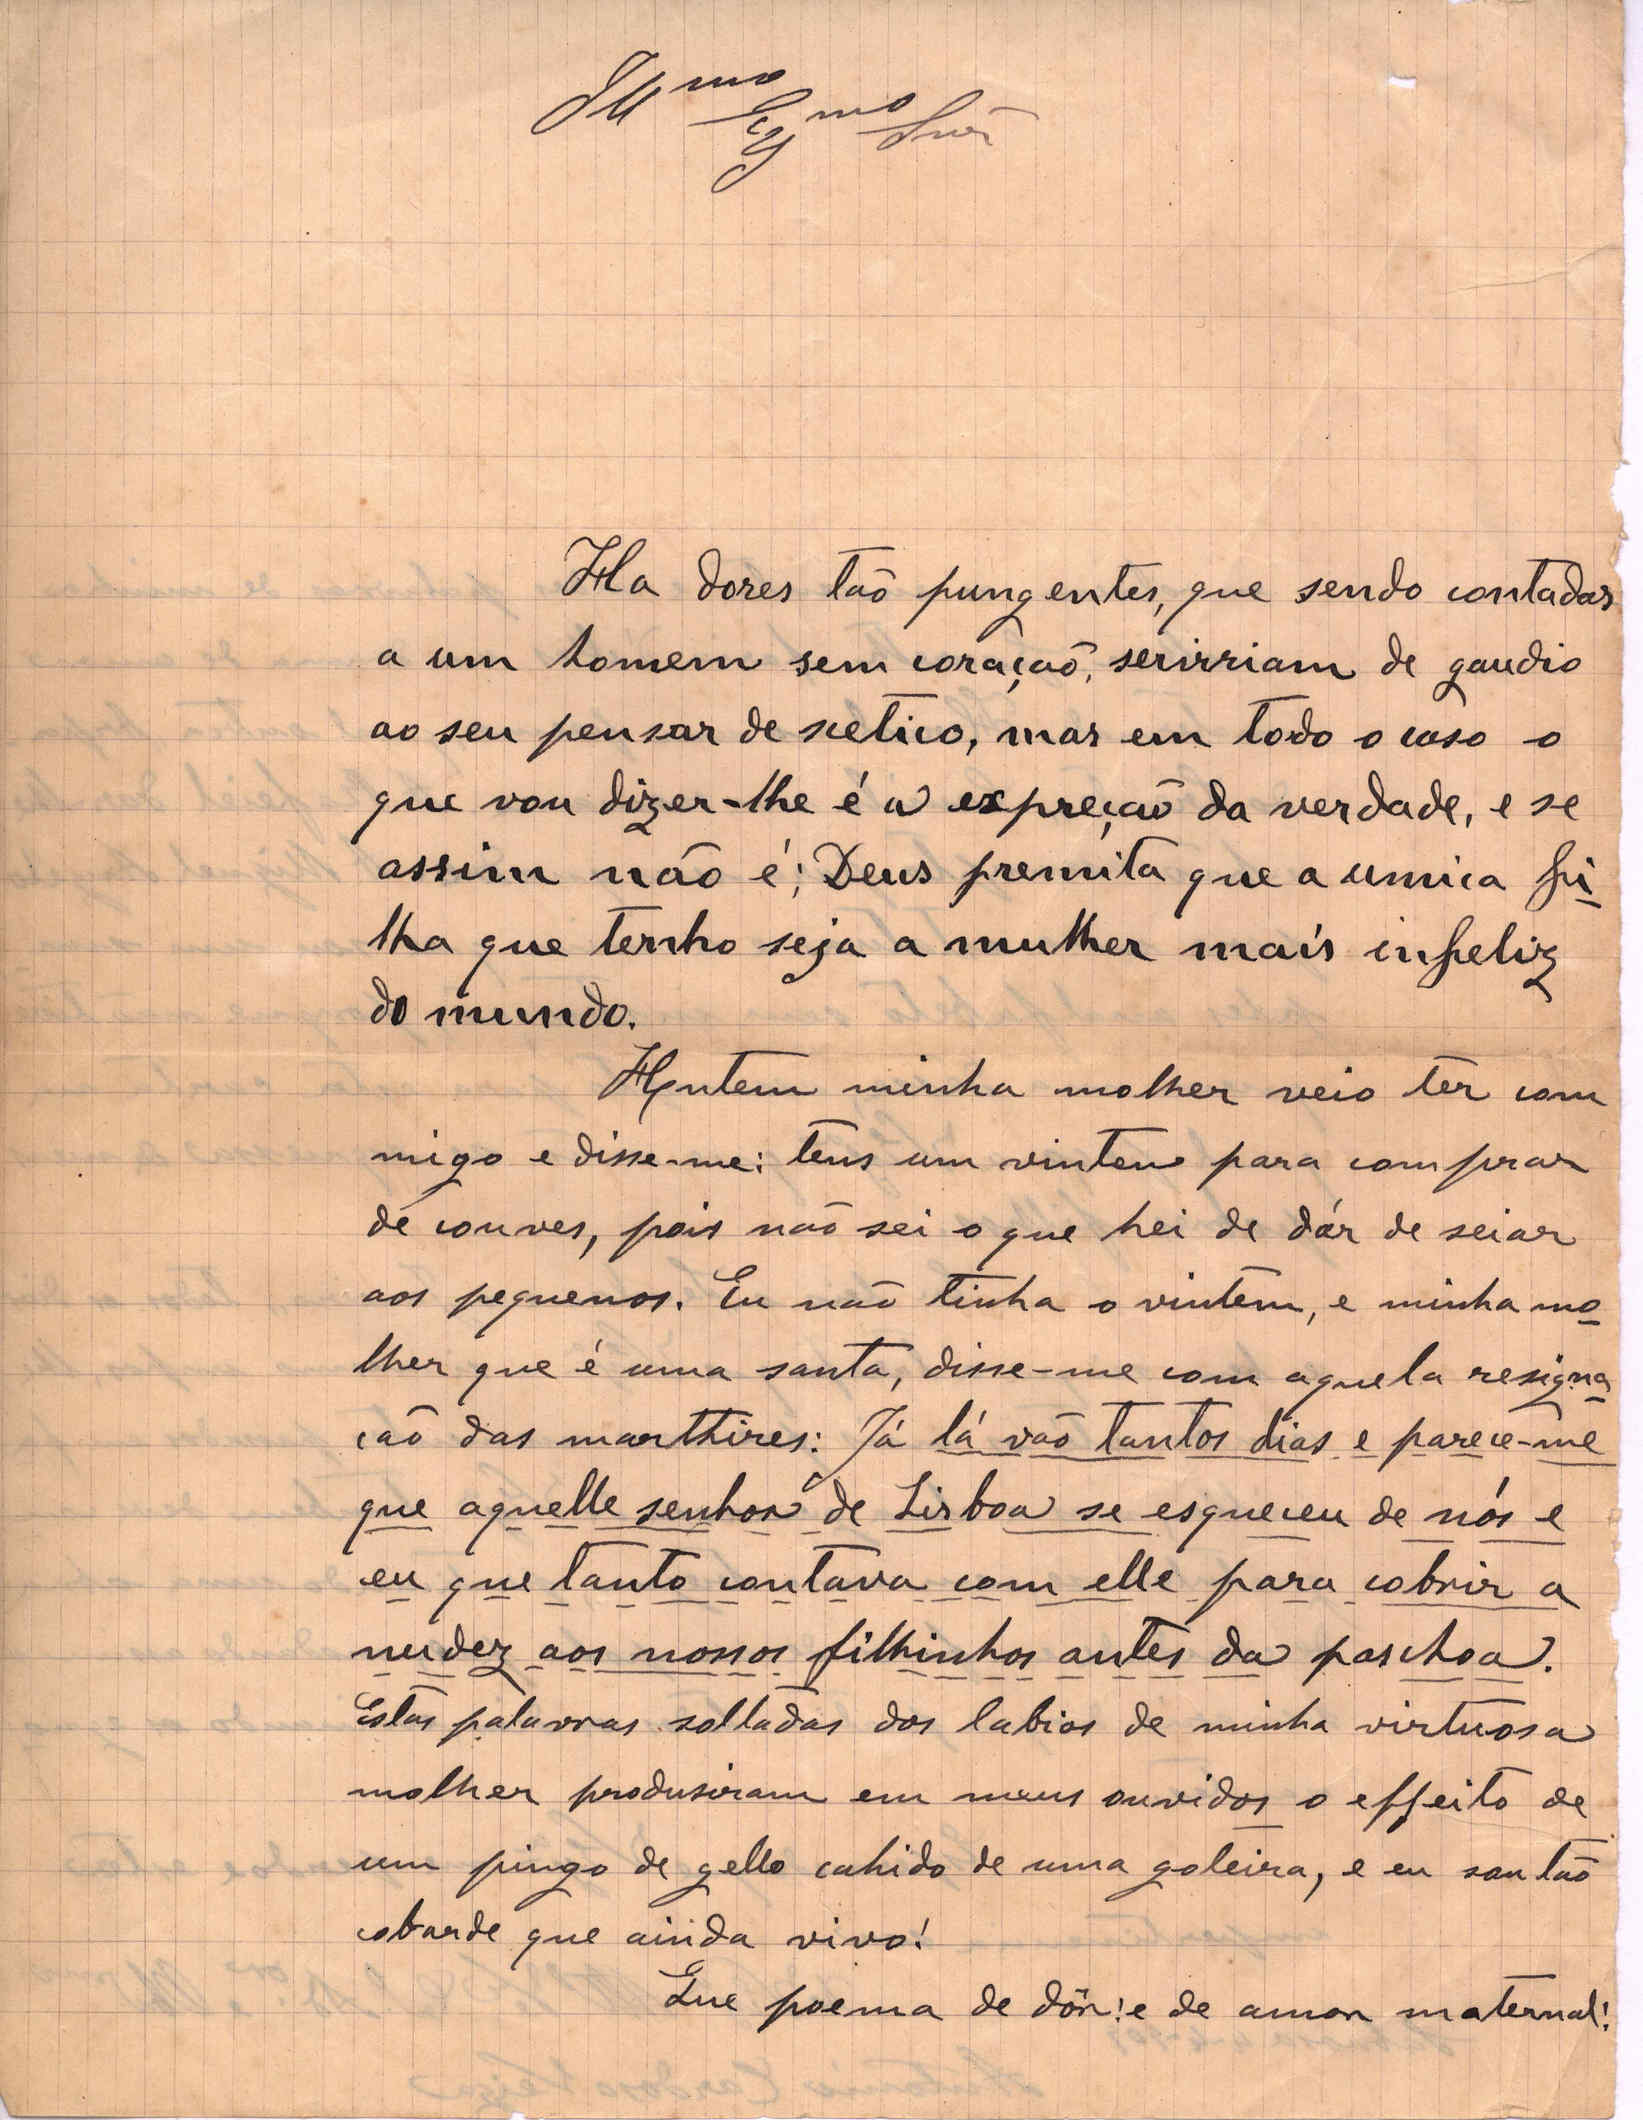 Illmo Exmo Snr
Ha dores tão pungentes, que sendo contadas
a um homem sem coração, serirriam de gaudio
ao seu pensar de scetico, mas em todo o caso o
que vou dizer-lhe é a expreção da verdade, e se
assim não é; Deus premita que a unica fi-
lha que tenho seja a mulher mais infeliz
do mundo.
Hontem minha molher veio ter com
migo e disse-me: tens um vintem para comprar
de couves, pois não sei o que hei de dár de seiar
aos pequenos. Eu não tinha o vintem, e minha mo-
lher que é uma santa, disse-me com aquela resigna-
cão das marthires: Já lá vão tantos dias e parece-me
que aquelle senhor de Lisboa se esqueceu de nós e
eu que tanto contava com elle para cobrir a
nudez aos nossos filhinhos antes da paschoa.
Estas palavras soltadas dos labios de minha virtuosa
molher produsiram em meus ouvidos o effeito de
um pingo de gello cahido de uma goleira, e eu sou tão
cobarde que ainda vivo!
Que poema de dôr! e de amor maternal!